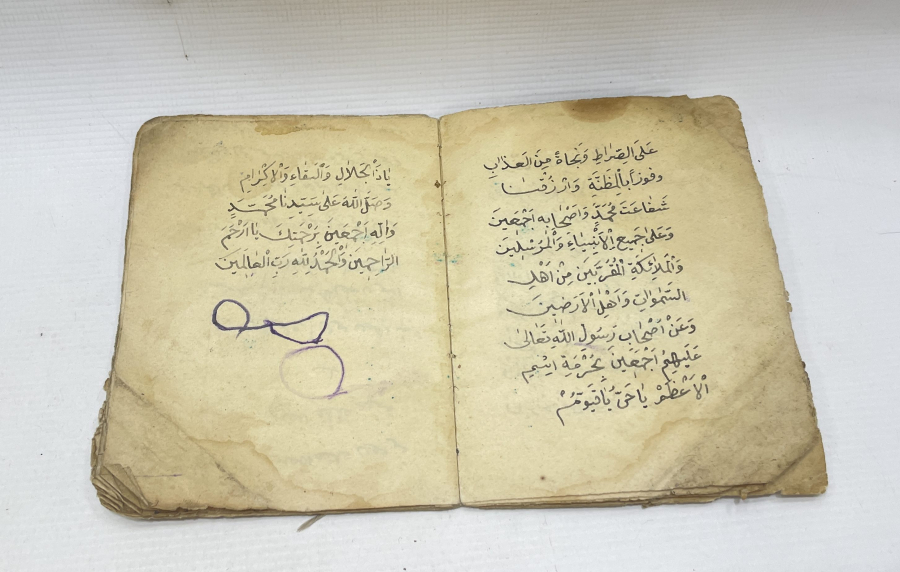 عَلَى الصِّرَاطِ وَنَجَاةً مِنَ الْعَذَابِ
وفوزاً بالْجَنَّةِ وَارْزُقْنَا
شَفَاعَتَ مُحَمَّدٍ وَاَصْحَابِهِ اَجْمَعِينَ
وَعَلَى جَمِيعِ الْاَنْبِيَاءِ وَالْمُرْسَلِينَ
وَالْمَلَائِكَةِ الْمُقَرَّبِينَ مِنْ اَهْلِ
السَّمٰوَاتِ وَاَهْلِ الْاَرَضِينَ
وَعَنْ اَصْحَابِ رَسُولِ اللّٰهِ تَعَالٰى
عَلَيْهِمْ اَجْمَعِينَ بِحُرْمَةِ اِسْمِ
الْاَعْظَمْ يَا حَيُّ يَا قَيُّومُ
يَاذَا الْجَلَالِ وَالْبَقَاءِ وَالْاِكْرَامِ
وَصَلَّى اللّٰهُ عَلَى سَيِّدِنَا مُحَمَّدٍ
وَاٰلِهِ اَجْمَعِينَ بِرَحْمَتِكَ يَا اَرْحَمَ
الرَّاحِمِينَ وَالْحَمْدُ لِلّٰهِ رَبِّ الْعَالَمِينَ